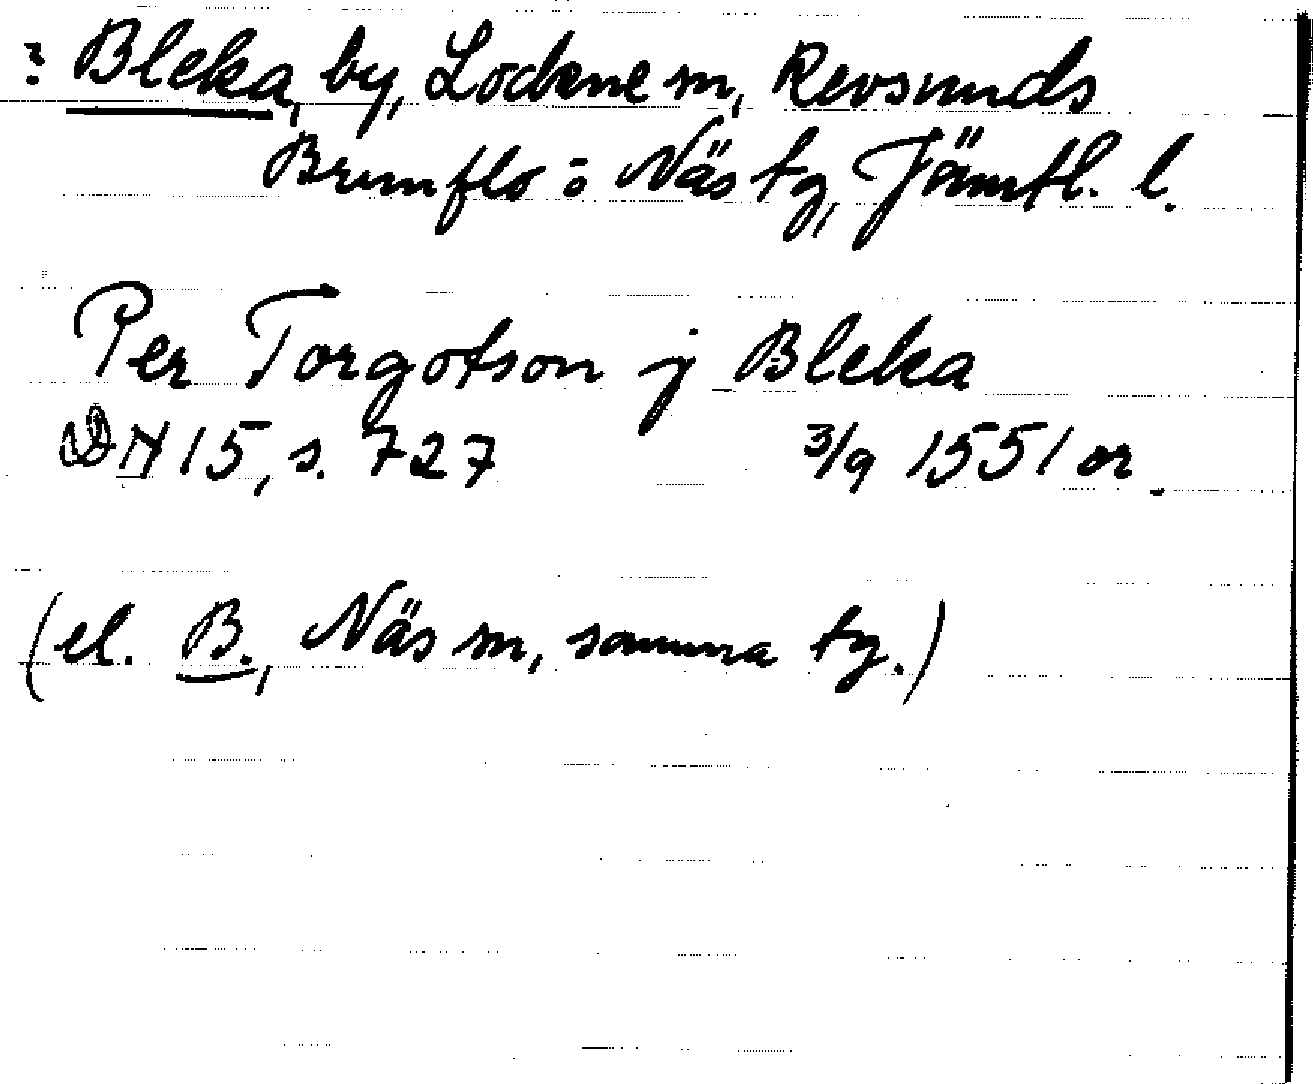 ? Bleka, by, Lockne sn, Revsunds
Brunflo o Näs tg, Jämtl. l.
Per Torgotson j Bleka
DN 15, s. 727 3/9 1551 or.
(el. B., Näs sn, samma tg.)